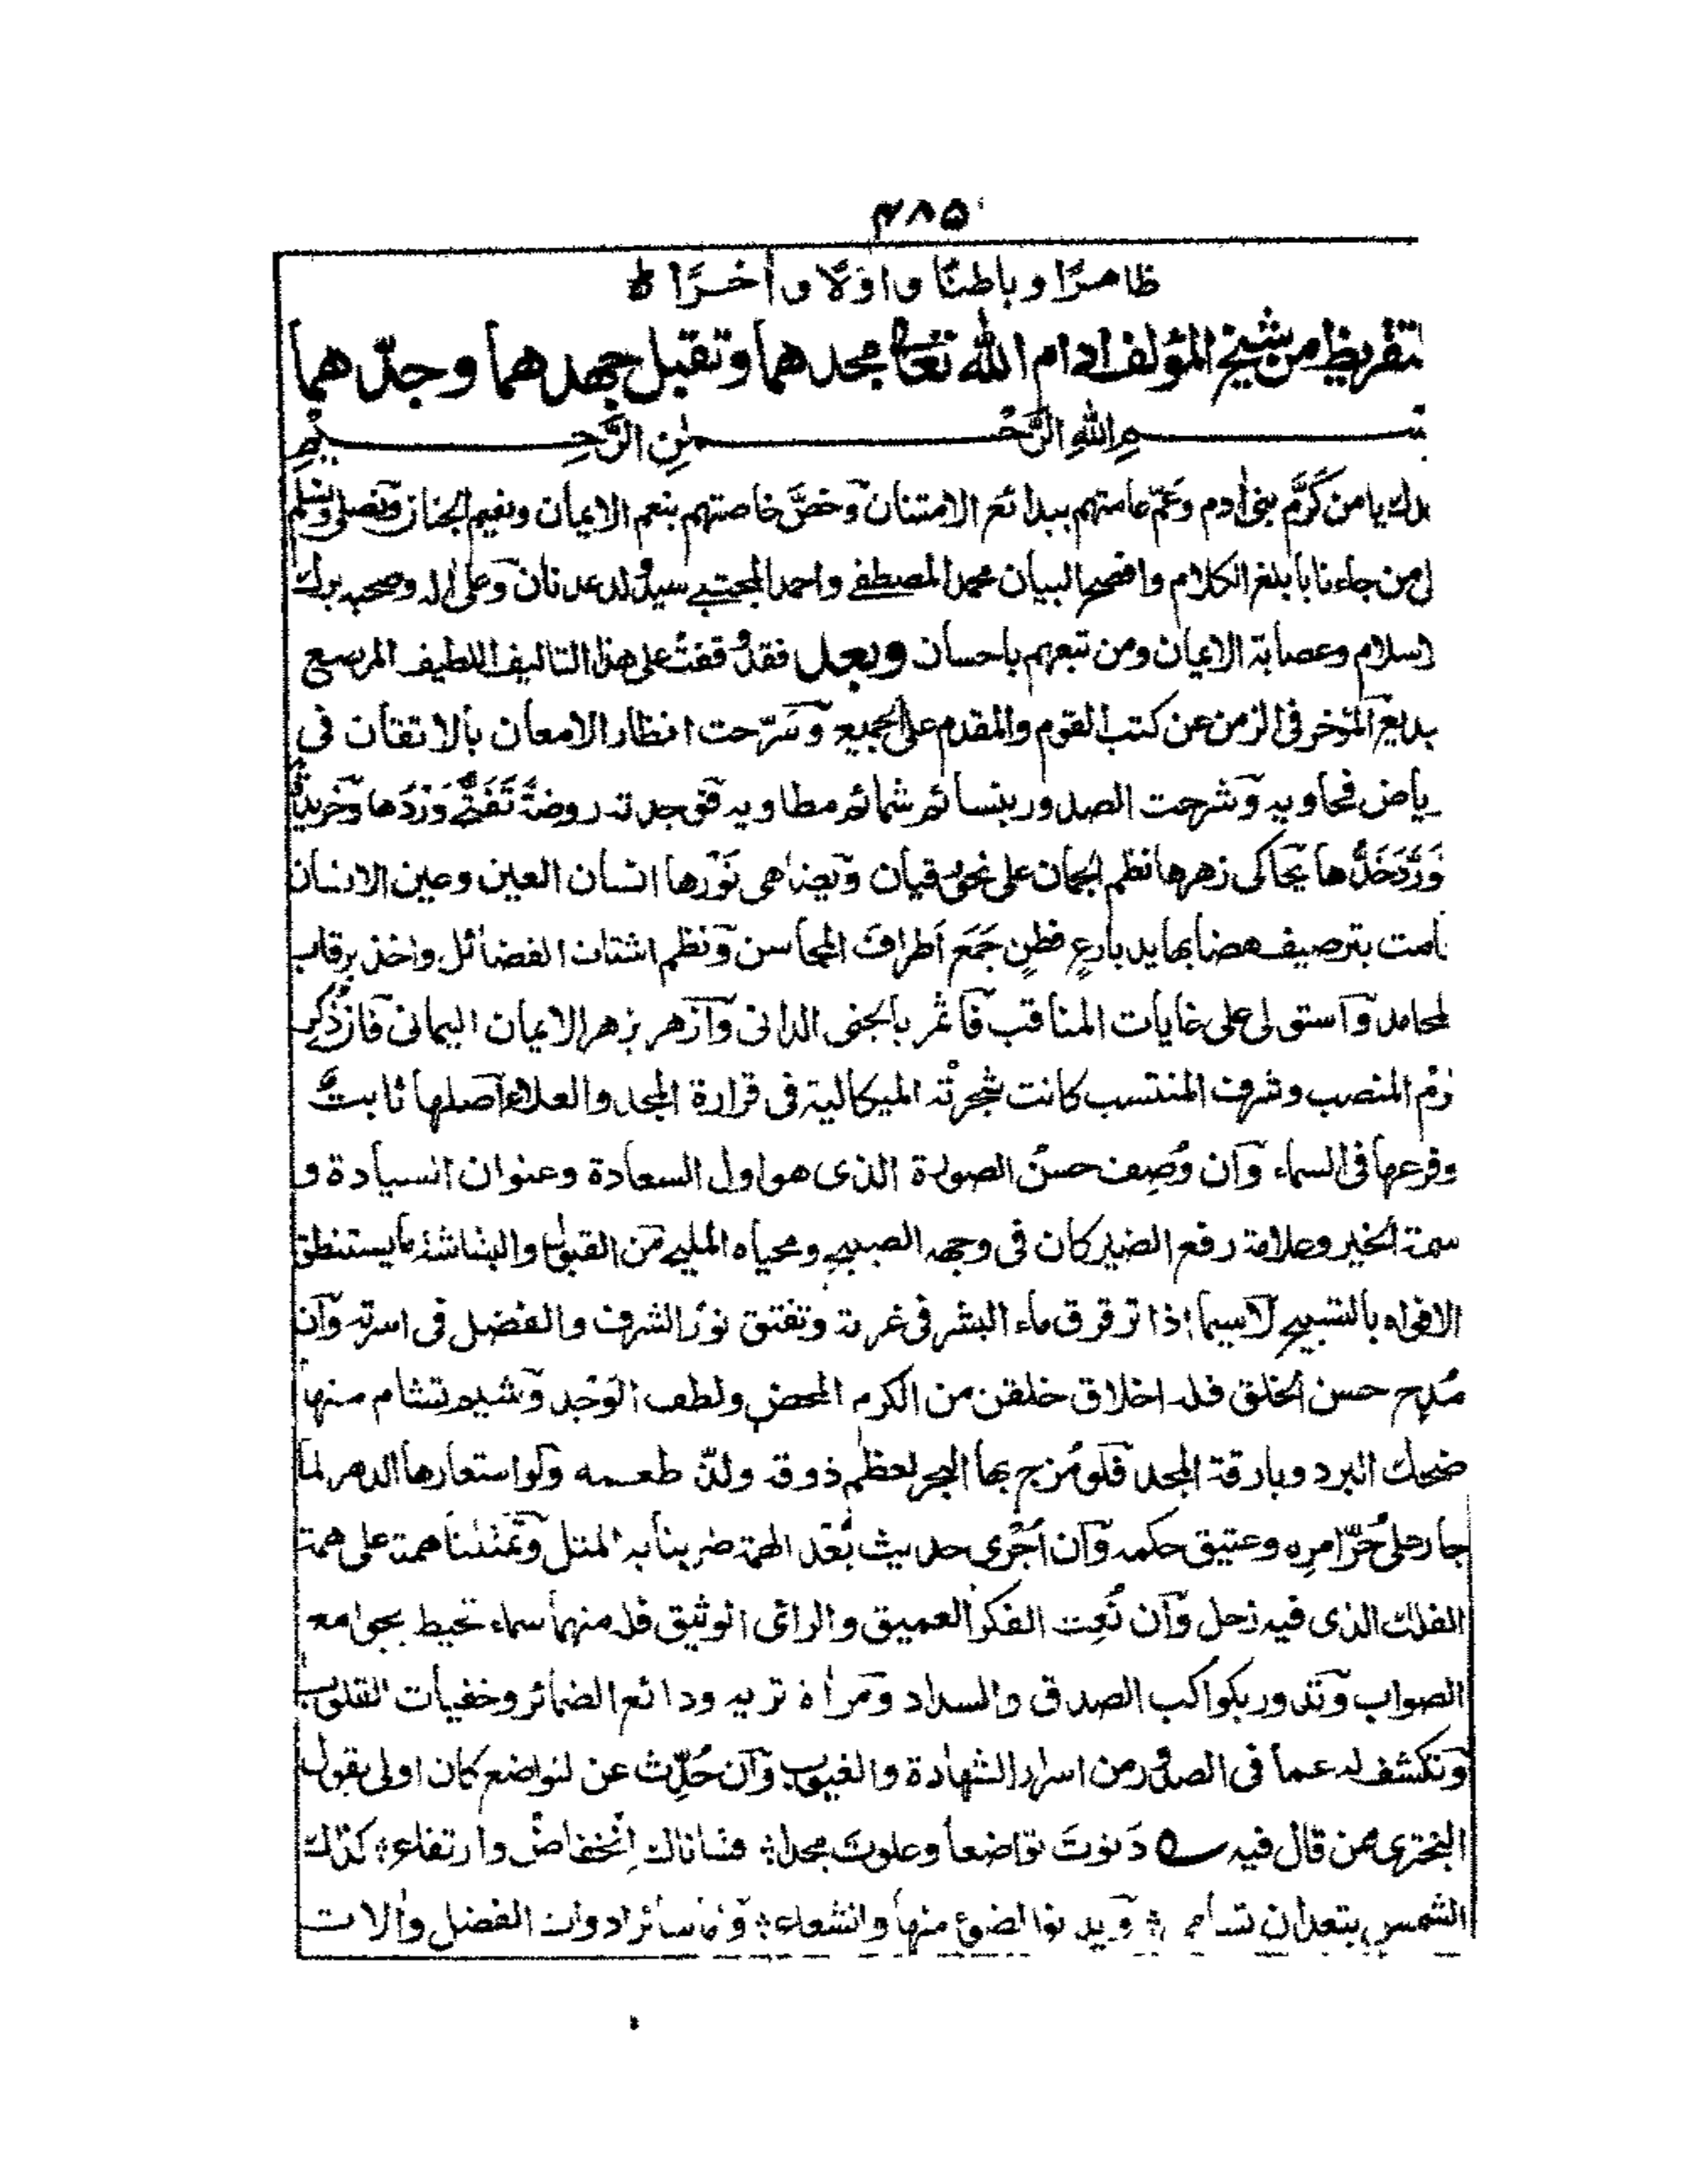 ۴۸۵
ظاهرًا و باطنًا و اوّلًا و اٰخرًا ط
تقريظ من شيخ المؤلف ادام الله تعالى مجدهما وتقبل جهدهما وجدّهما
بسم الله الرَّحْمٰنِ الرَّحِيْمِ
يا من كَرَّم بنى اٰدم وعَمّ عامتهم ببدائع الامتنان وخصَّ خاصتهم بنعم الايمان ونعيم الجنان ونصلى ونسلم
من جاءنا بابلغ الكلام وافصح البيان محمد المصطفى واحمد المجتبى سيد ولد عدنان وعلى اٰله وصحبه
وعصابة الايمان ومن تبعهم باحسان وبعد فقد وقفتُ على هذا التاليف اللطيف المرصع
بديع المؤخر فى الزمن عن كتب القوم والمقدم على الجميع وسَرّحت انظار الامعان بالاتقان فى
رياض فحاويه وشرحت الصدور بنسائم شمائم مطاويه فوجدته روضةً تَفَتَّحَ وَرْدُها
وَرَّدَ خَدُّها يحاكى زهرها نظم الجمان على نحور قيان ويضاهى نَوْرُها انسان العين وعين الانسان
بترصيف هضابها يد بارعٍ فطنٍ جَمَعَ اَطراف المحاسن ونظم اشتات الفضائل واخذ برقاب
المحامد واستولى على غايات المناقب فاثمر بالجنى الدانى وازهر بزهر الايمان اليمانى فان ذُكر
المنصب وشرف المنتسب كانت شجرته الميكالية فى قرارة المجد والعلاء اصلها ثابتٌ
وفرعها فى السماء وان وُصِف حسنُ الصورة الذى هو اول السعادة وعنوان السيادة و
سمة الخير وعلامة رفع الضير كان فى وجهه الصبيح ومحياه المليح من القبول والبشاشة ما يستنطق
الافواه بالتسبيح لاسيما اذا ترقرق ماء البشر فى غرته وتفتق نور الشرف والفضل فى اسرته وان
مُدِح حسن الخلق فله اخلاق خلقن من الكرم المحض ولطف الوَجْد وشيم تشام منها
ضحك البرد وبارقة المجد فلو مُزج بها البحر لعظم ذوقه ولذّ طعمه ولو استعارها الدهر لما
جار على حُرّ امره وعتيق حكمه وان اُجْرى حديث بُعْد الهمة ضربنا به المثل وتمثلنا همة على همة
الفلك الذى فيه زحل وان نُعِت الفكر العميق والرائى الوثيق فله منهما سماء تحيط بجوامع
الصواب وتدور بكواكب الصدق والسداد ومراٰة تريه ودائع الضمائر وخفيات القلوب
وتكشف له عما فى الصدور من اسرار الشهادة والغيوب وان حُدِّث عن التواضع كان اولى بقول
البحترى ممن قال فيه ؎ دَنوتَ تواضعا وعلوتَ مجدا ؛ فشاناك اِنْخفاضٌ وارتفاع ؛ كذلك
الشمس يبتعد ان تسامى ؛ ويدنو الضوء منها والشعاع ؛ واما سائر ادوات الفضل واٰلات